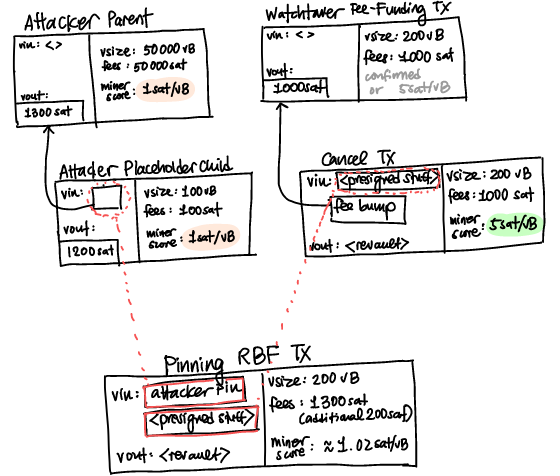 Attacker Parent
vin: <>
vout:
1300 sat
vsize: 50000 vB
fees: 50000 sat
miner score: 1 sat/vB
Watchtower Fee-Funding TX
vin: <>
vout:
1000sat
vsize: 200 vB
fees: 1000 sat
confirmed
or 5sat/vB
Attacker Placeholder Child
vin:
vout:
1200 sat
vsize: 100 vB
fees: 100 sat
miner score: 1 sat/vB
Cancel Tx
vin: <presigned stuff>
fee bump
vout: <revault>
vsize: 200 vB
fees: 1000 sat
miner score: 5sat/vB
Pinning RBF Tx
vin: attacker pin
<presigned stuff>
vout: <revault>
vsize: 200 vB
fees: 1300 sat
(additional 200 sat)
miner score: ≈ 1.02 sat/vB